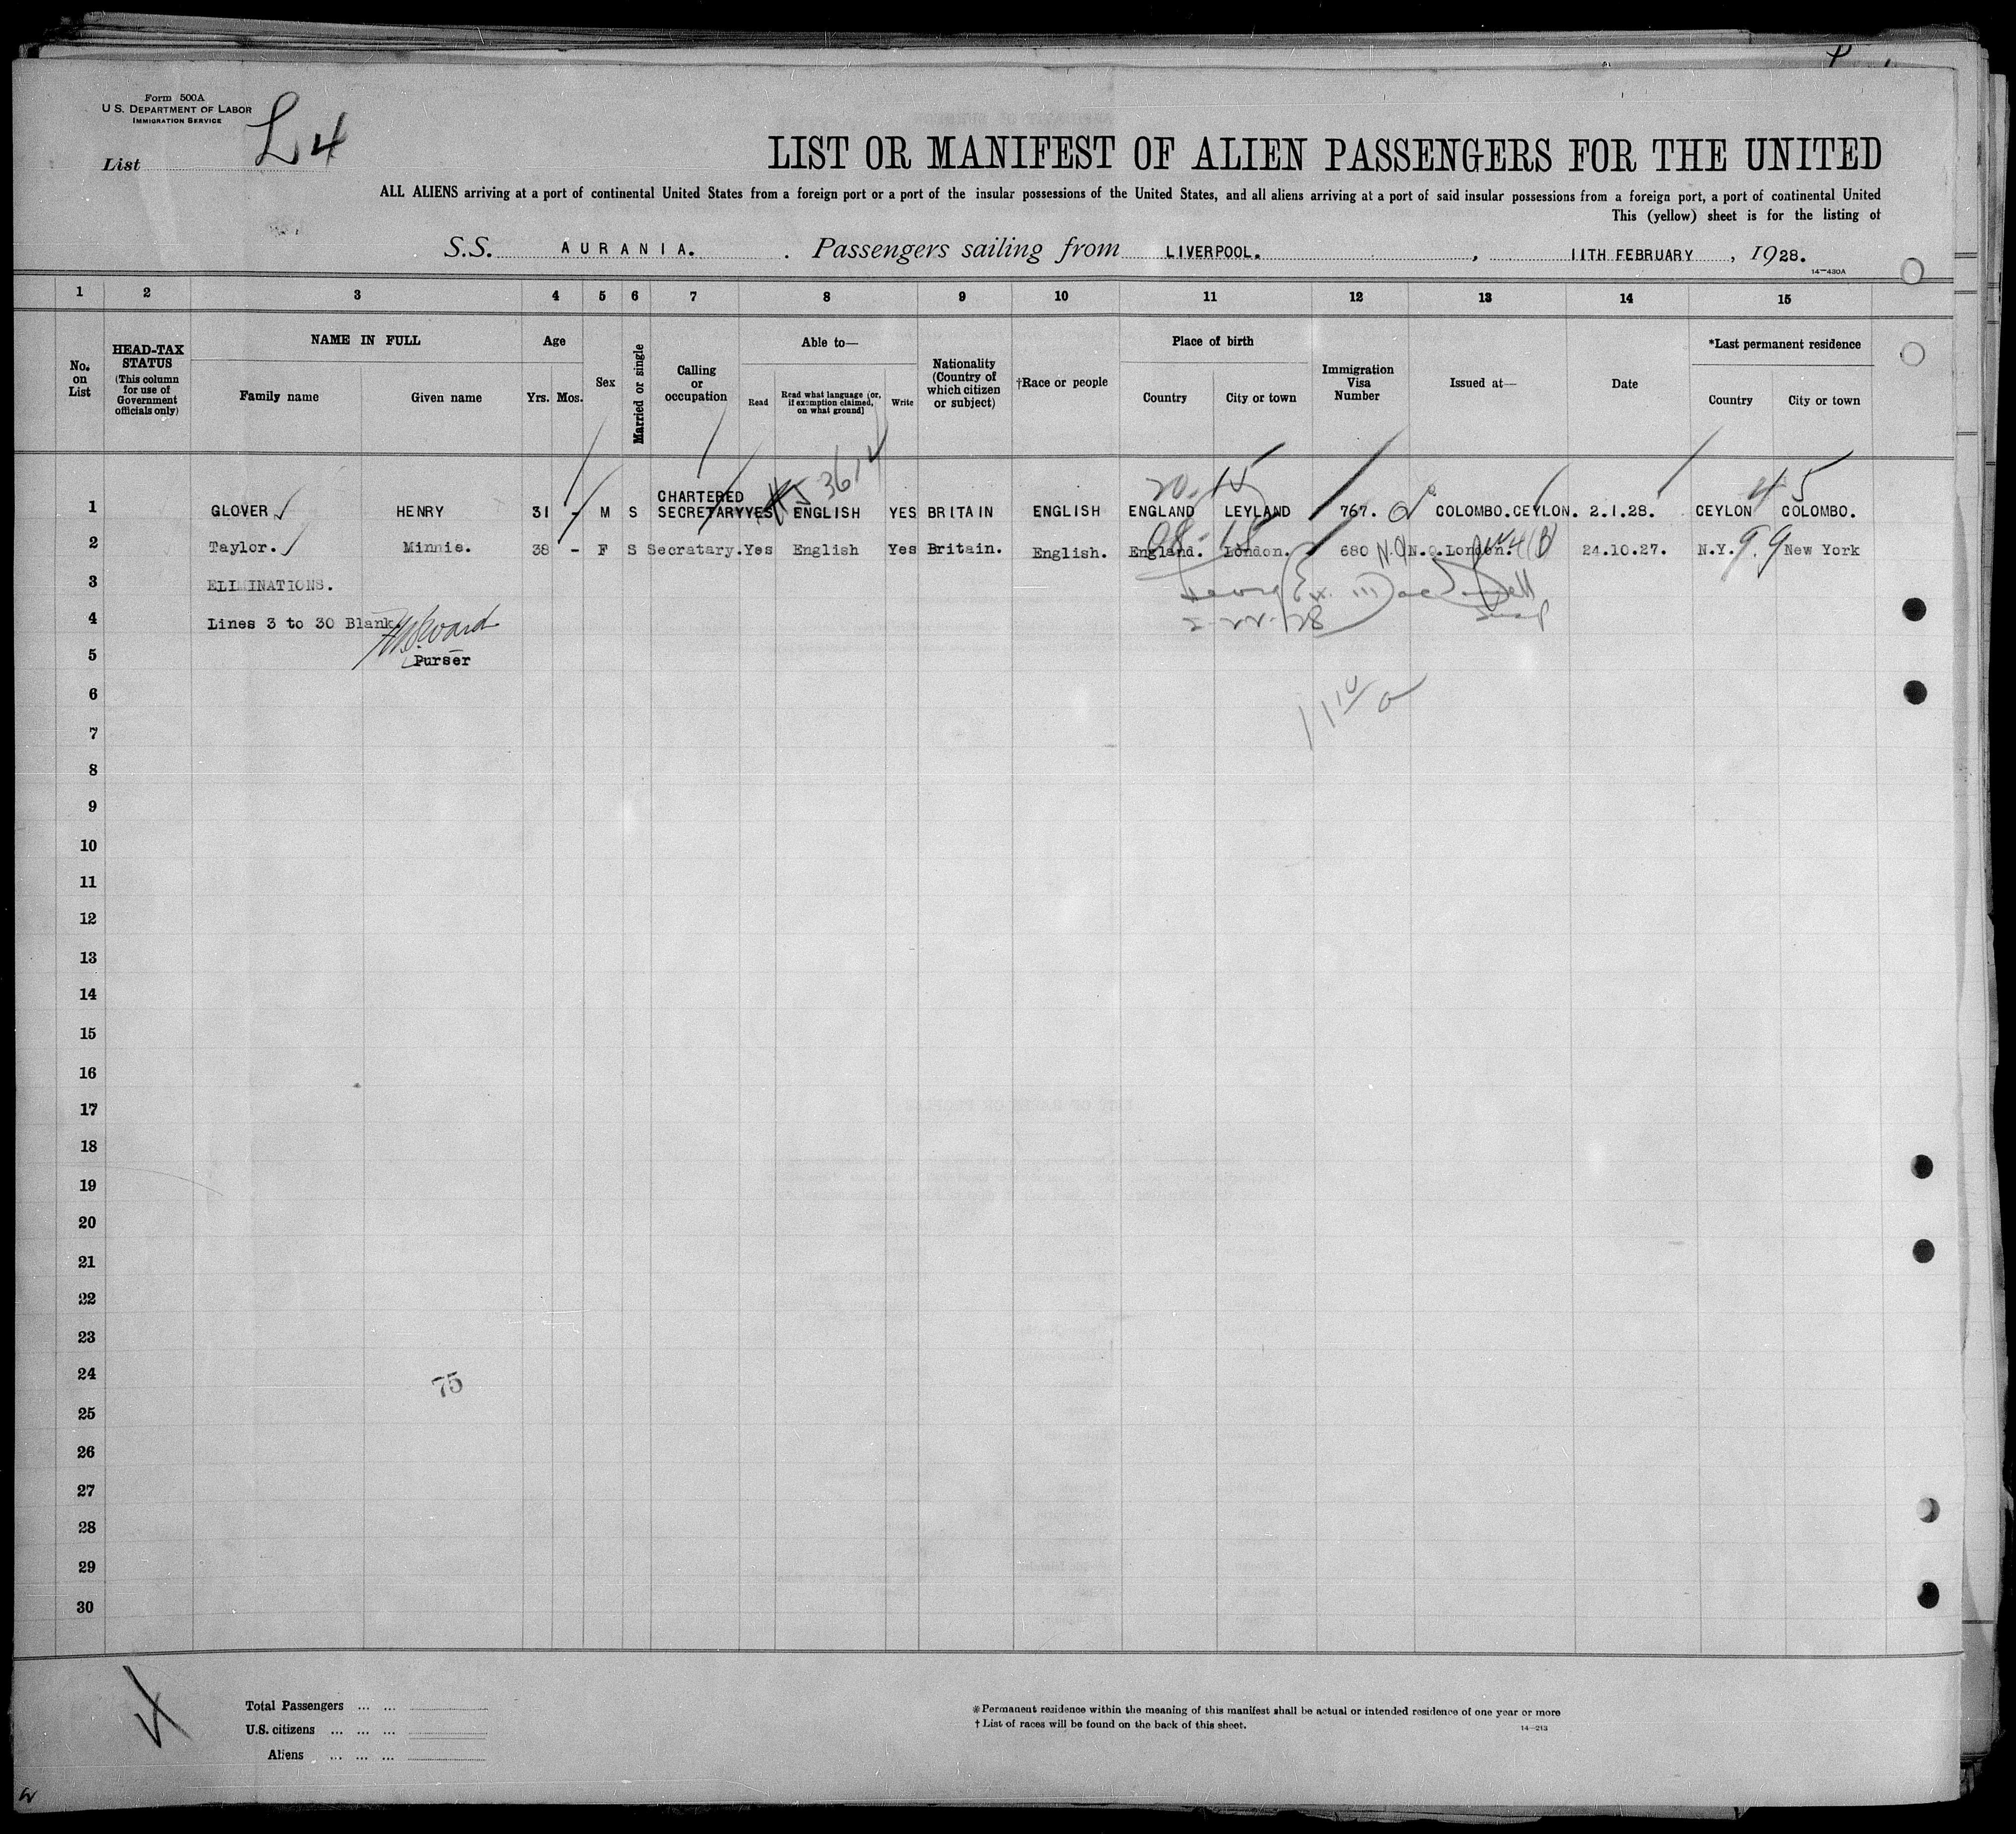 Form 500A
U.S. DEPARTMENT OF LABOR
IMMIGRATION SERVICE
List L4
LIST OR MANIFEST OF ALIEN PASSENGERS FOR THE UNITED
ALL ALIENS arriving at a port of continental United States from a foreign port or a port of the insular possessions of the United States, and all aliens arriving at a port of said insular possessions from a foreign port, a port of continental United
This (yellow) sheet is for the listing of
S.S. AURANIA. Passengers sailing from LIVERPOOL., 11TH FEBRUARY, 1928.
14-430A
1 2 3 4 5 6 7 8 9 10 11 12 13 14 15
No. on List
HEAD-TAX STATUS
(This column for use of Government officials only)
NAME IN FULL
Family name Given name
Age
Yrs. Mos.
Sex
Married or single
Calling or occupation
Able to—
Read
Read what language (or, if exemption claimed, on what ground)
Write
Nationality (Country of which citizen or subject)
†Race or people
Place of birth
Country City or town
Immigration Visa Number
Issued at—
Date
*Last permanent residence
Country City or town
3614
20
45
1 GLOVER HENRY 31 - M S CHARTERED SECRETARY YES ENGLISH YES BRITAIN ENGLISH ENGLAND LEYLAND 767. COLOMBO.CEYLON. 2.1.28. CEYLON COLOMBO.
98-18
99
2 Taylor. Minnie. 38 - F S Secratary. Yes English Yes Britain. English. England. London. 680 N.Q. London. 4(B) 24.10.27. N.Y. New York
3 ELIMINATIONS.
4 Lines 3 to 30 Blank.
2-22-28
5 Purser
6
7
8
9
10
11
12
13
14
15
16
17
18
19
20
21
22
23
24
75
25
26
27
28
29
30
Total Passengers ... ...
U.S. citizens ... ... ...
Aliens ... ... ...
*Permanent residence within the meaning of this manifest shall be actual or intended residence of one year or more
† List of races will be found on the back of this sheet.
14-213